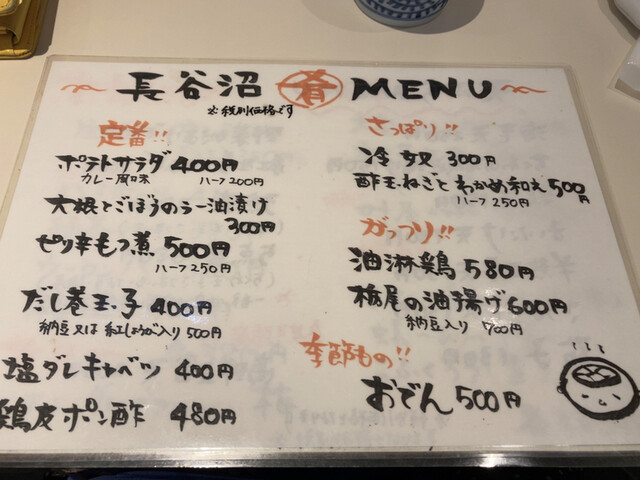 長谷沼 肴 MENU
※税別価格です
定番!!
ポテトサラダ 400円
カレー風味 ハーフ200円
大根とごぼうのラー油漬け
300円
ピリ辛もつ煮 500円
ハーフ250円
だし巻玉子 400円
納豆又は紅しょうが入り 500円
塩ダレキャベツ 400円
鶏皮ポン酢 480円
さっぱり!!
冷奴 300円
酢玉ねぎとわかめ和え 500円
ハーフ250円
がっつり!!
油淋鶏 580円
栃尾の油揚げ 600円
納豆入り 700円
季節もの!!
おでん 500円